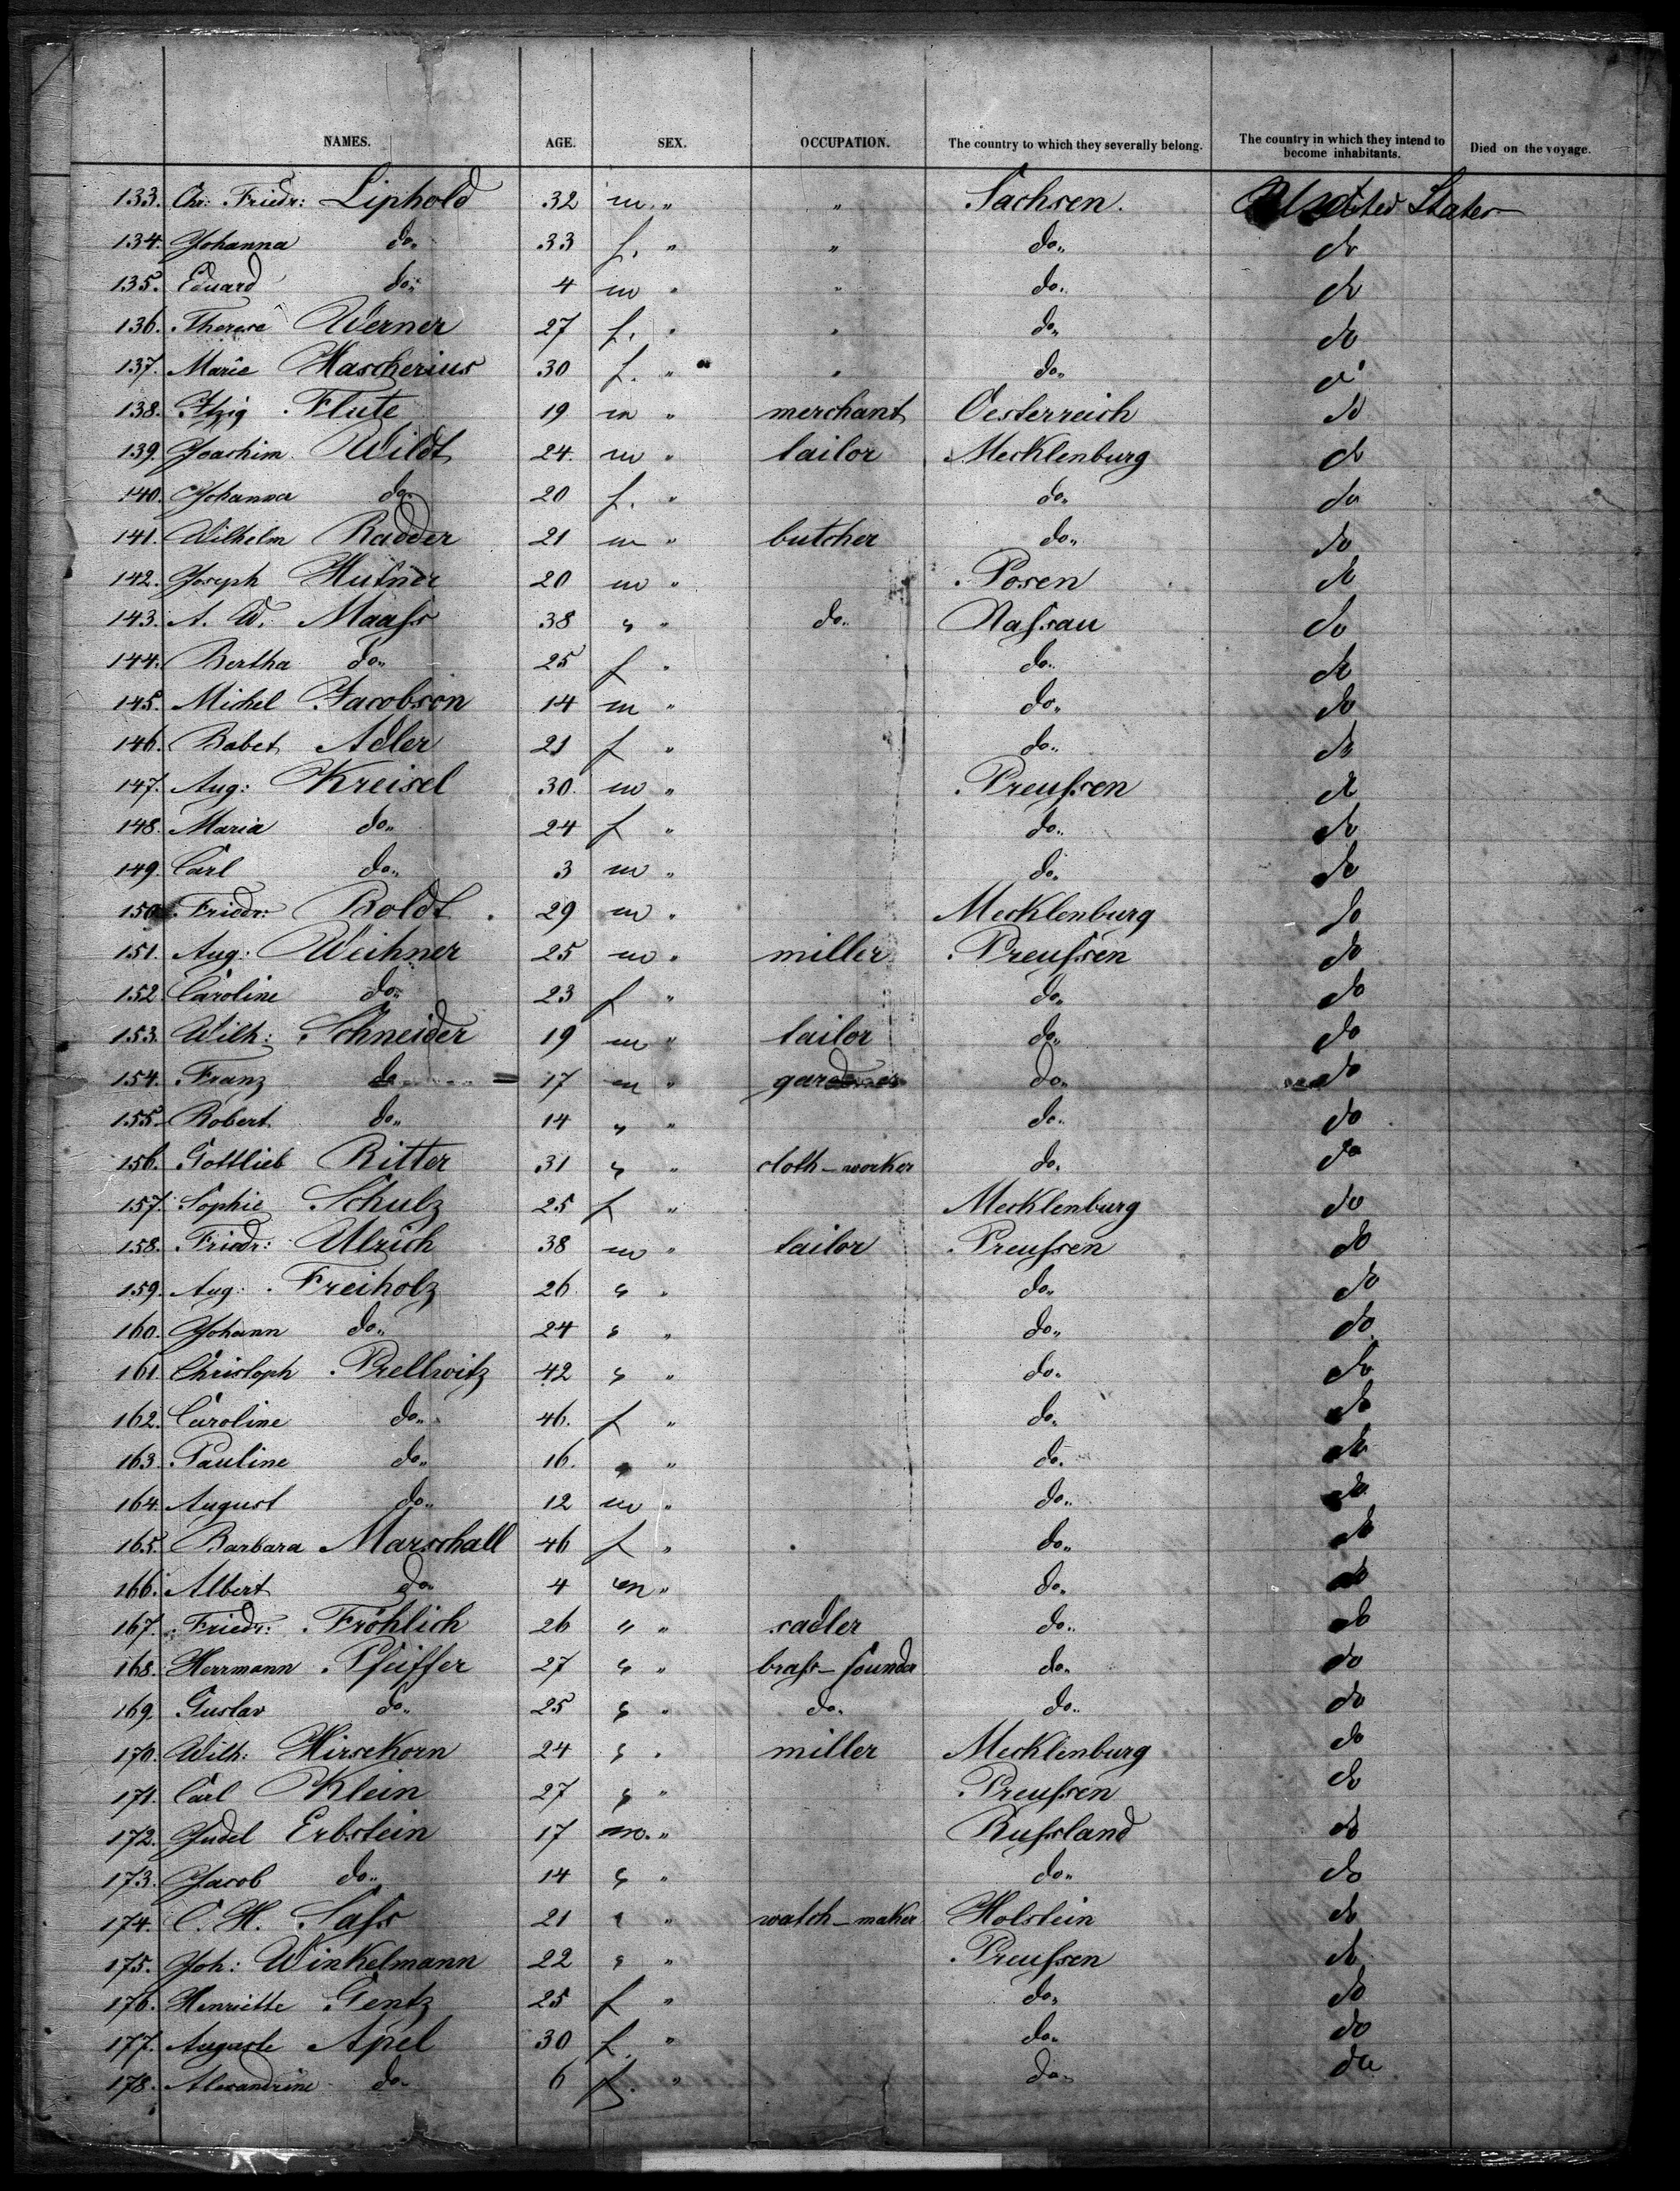 NAMES. AGE. SEX. OCCUPATION. The country to which they severally belong. The country in which they intend to become inhabitants. Died on the voyage.
133. Chr: Friedr: Liphold 32 m. " " Sachsen. United States
134. Johanna do. 33 f. " " do. do
135. Eduard do. 4 m " " do. do
136. Therese Werner 27 f. " " do. do
137. Marie Hascherius 30 f. " " do. do
138. Itzig Flute 19 m " merchant Oesterreich do
139. Joachim Wildt 24. m " tailor Mecklenburg do
140. Johanna do. 20 f. " do. do
141. Wilhelm Radder 21 m " butcher do. do
142. Joseph Hutner 20 m " Posen do
143. A. W. Maaſs 38 " " do. Naſsau do
144. Bertha do. 25 f " do. do
145. Michel Jacobson 14 m " do. do
146. Babet Adler 21 f " do. do
147. Aug: Kreisel 30. m " Preuſsen do
148. Maria do. 24 f " do. do
149. Carl do. 3 m " do. do
150. Friedr: Boldt 29 m " Mecklenburg do
151. Aug: Weihner 25 m " miller Preuſsen do
152 Caroline do. 23 f " do. do
153. Wilh: Schneider 19 m " tailor do. do
154. Franz do 17 m " gardener do. do
155. Robert do. 14 " " do. do
156. Gottlieb Ritter 31 " " cloth-worker do. do
157. Sophie Schulz 25 f " Mecklenburg do
158. Friedr: Ulrich 38 m " tailor Preuſsen do
159. Aug: Freiholz 26 " " do. do
160. Johann do. 24 " " do. do
161. Christoph Prellwitz 42 " " do. do
162. Caroline do. 46. f " do. do
163. Pauline do. 16. " " do. do
164. August do. 12 m " do. do
165. Barbara Marschall 46 f " do. do
166. Albert do. 4 m " do. do
167. Friedr: Fröhlich 26 " " sadler do. do
168. Herrmann Pfeiffer 27 " " braſs-founder do. do
169. Gustav do. 25 " " do. do. do
170. Wilh: Hirsekorn 24 " " miller Mecklenburg do
171. Carl Klein 27 " " Preuſsen do
172. Judel Erbstein 17 m. " Ruſsland do
173. Jacob do. 14 " " do. do
174. C. H. Saſs 21 " " watch-maker Holstein do
175. Joh: Winkelmann 22 " " Preuſsen do
176. Henriette Gentz 25 f " do. do
177. Auguste Apel 30 f. " do. do
178. Alexandrine do. 6 f. " do. do